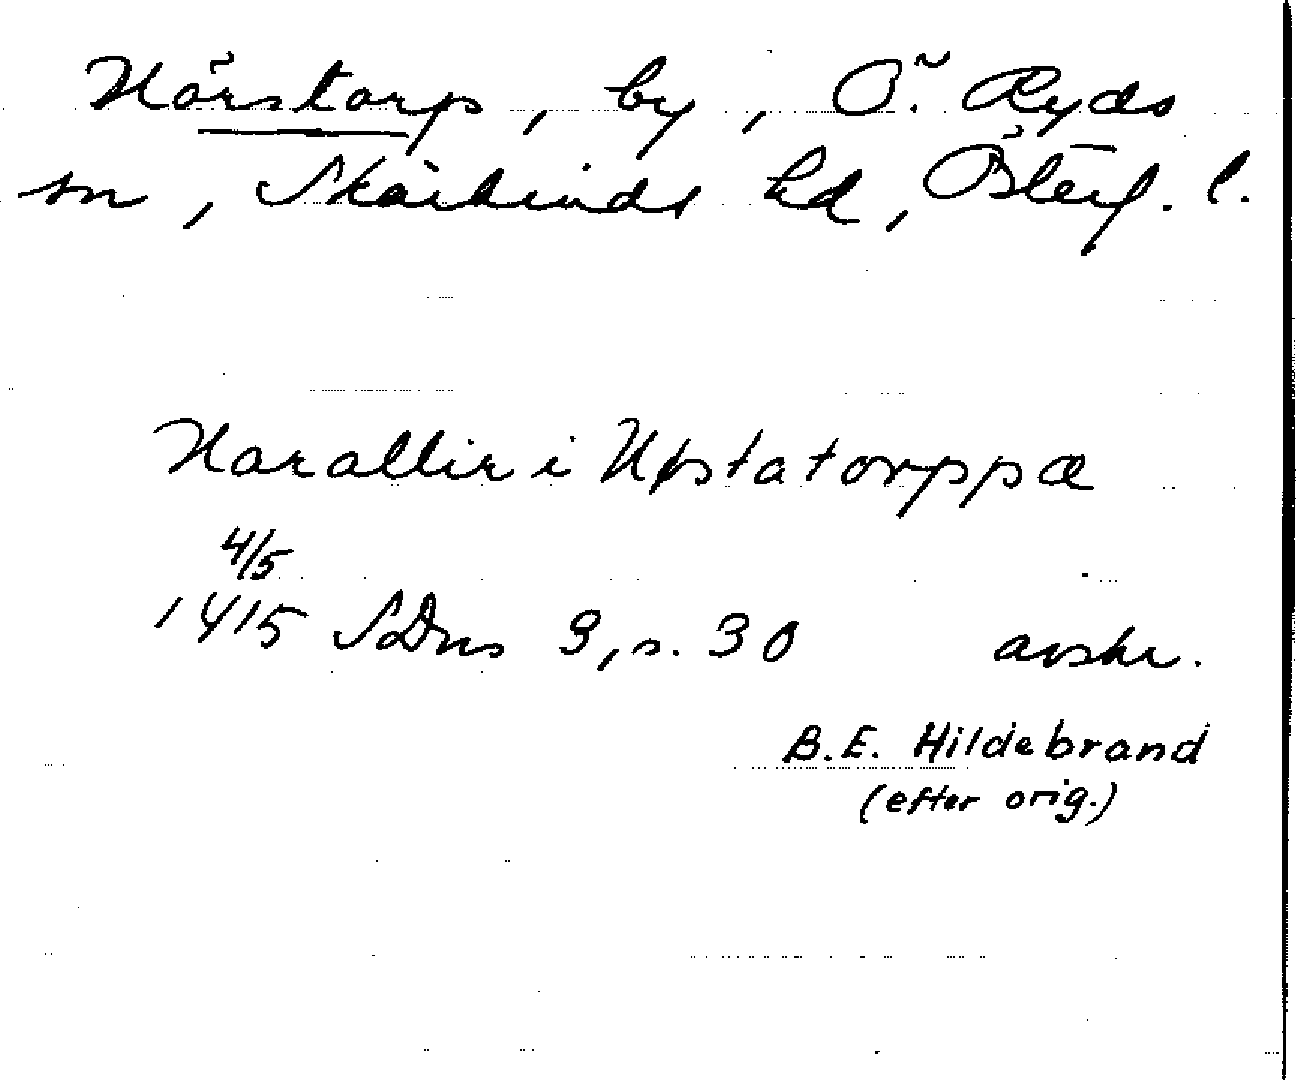 Hörstorp, by, Ö. Ryds
sn, Skärkinds hd, Österg. l.
Harallir i Høstatorppæ
4/5
1415 SDns 3, s. 30 avskr.
B.E. Hildebrand
(efter orig.)